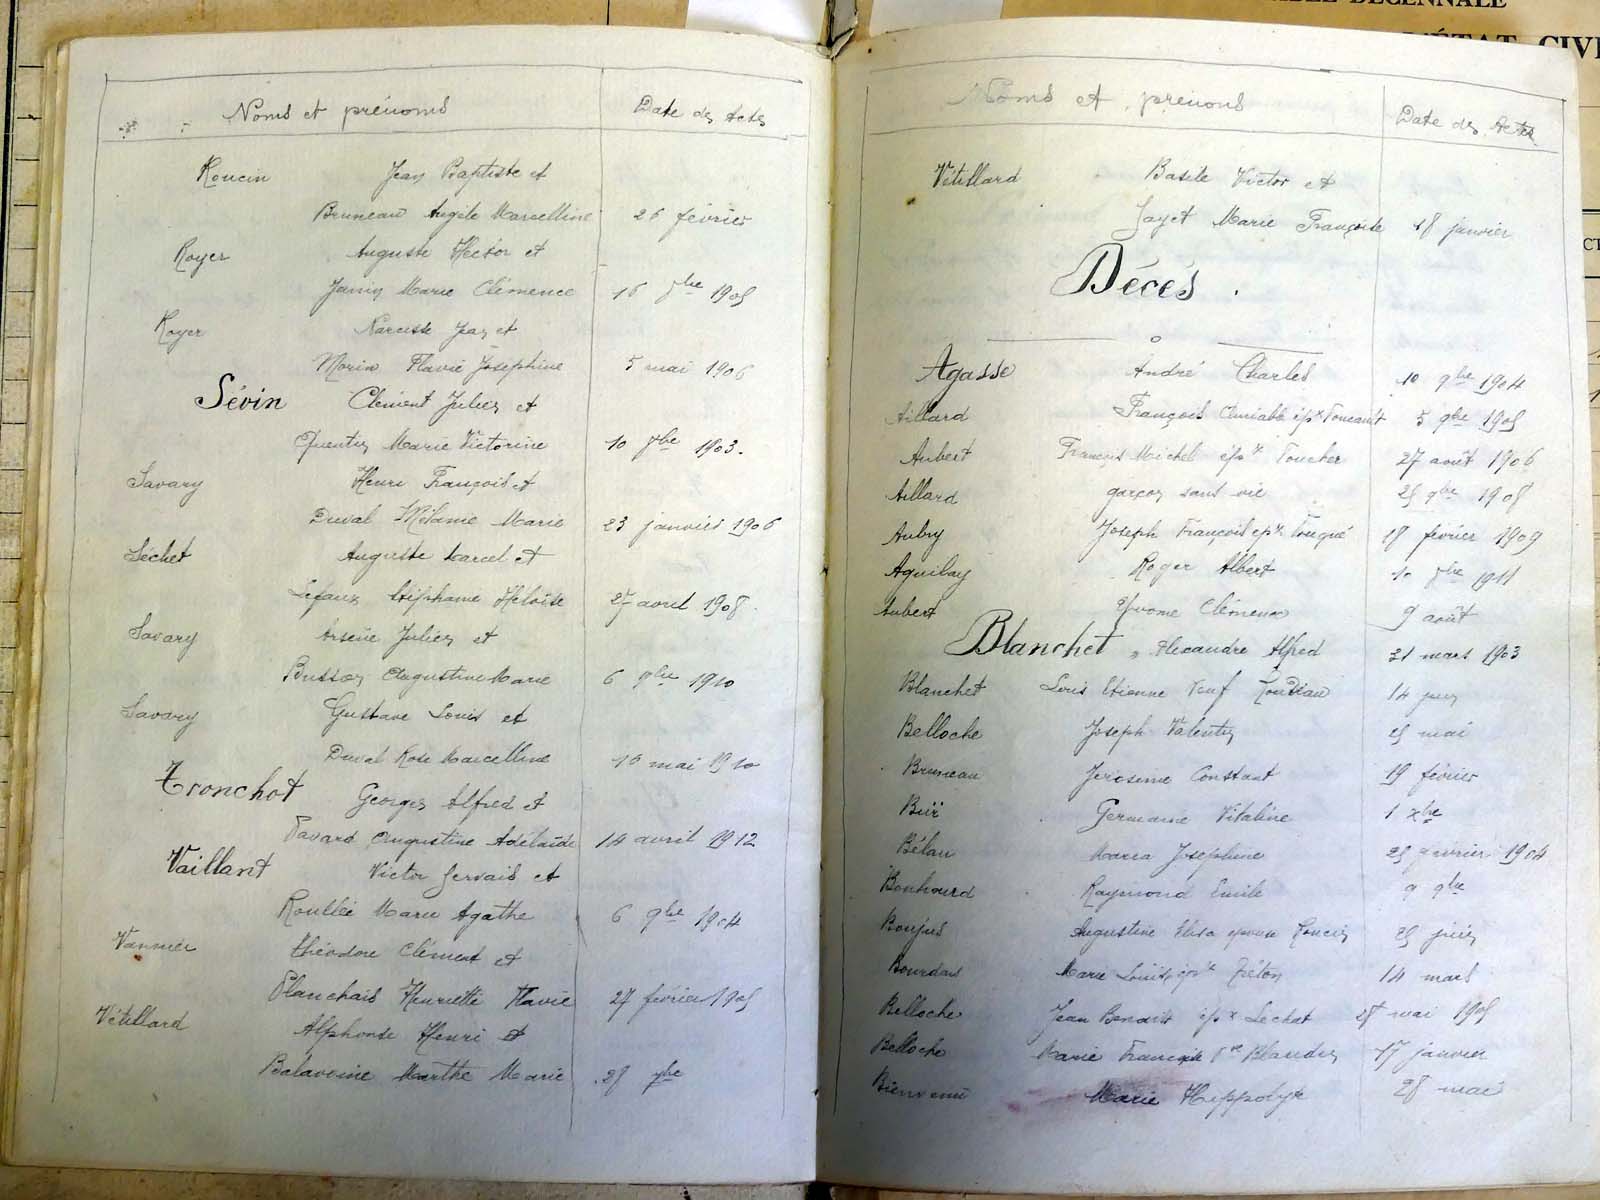 Noms et prénoms Date des Actes
Roncin Jean Baptiste et
Bruneau Angèle Marcelline 26 février
Royer Auguste Hector et
Janin Marie Clémence 16 1905
Royer Narcisse Jean et
Morin Flavie Joséphine 5 mai 1906
Sévin Clément Julien et
Quentin Marie Victorine 10 1903.
Savary Henri François et
Duval Mélanie Marie 23 janvier 1906
Séchet Auguste Marcel et
Lefaux Stéphanie Héloïse 27 avril 1908.
Savary Arsène Julien et
Busson Augustine Marie 6 1910
Savary Gustave Louis et
Duval Rose Marcelline 10 mai 1910
Tronchot Georges Alfred et
Pavard Augustine Adélaïde 14 avril 1912
Vaillant Victor Gervais et
Roullée Marie Agathe 6 9bre 1904
Vannier Théodore Clément et
Planchais Henriette Flavie 27 février 1905
Vétillard Alphonse Henri et
Balavoine Marthe Marie 28
TABLE DÉCENNALE
L'ÉTAT CIVI
Noms et prénoms Date des Actes
Vétillard Basile Victor et
Jayet Marie Françoise 18 janvier
Décès.
Agasse André Charles 10 9bre 1904
Aillard François Aimable épx Foucault 5 9bre 1905
Aubert François Michel épx Foucher 27 août 1906
Aillard garçon sans vie 25 9bre 1908
Aubry Joseph François épx Fouqué 18 février 1909
Aguilay Roger Albert 10 1911
Aubert Yvonne Clémence 9 août
Blanchet Alexandre Alfred 21 mars 1903
Blanchet Louis Etienne Veuf 14 juin
Belloche Joseph Valentin 25 mai
Bruneau Constant 19 février
Buï Germaine Vitaline 1 xbre
Bélan Maria Joséphine 25 février 1904
Bonhourd Raymond Emile 9 9bre
Boujus Augustine Elisa épouse Roncin 25 juin
Bourdais Marie Louise 14 mars
Belloche Jean Benoist épx Séchet 28 mai 1905
Belloche Marie Françoise Vve Blandin 17 janvier
Bienvenu Marie Hippolyte 28 mai